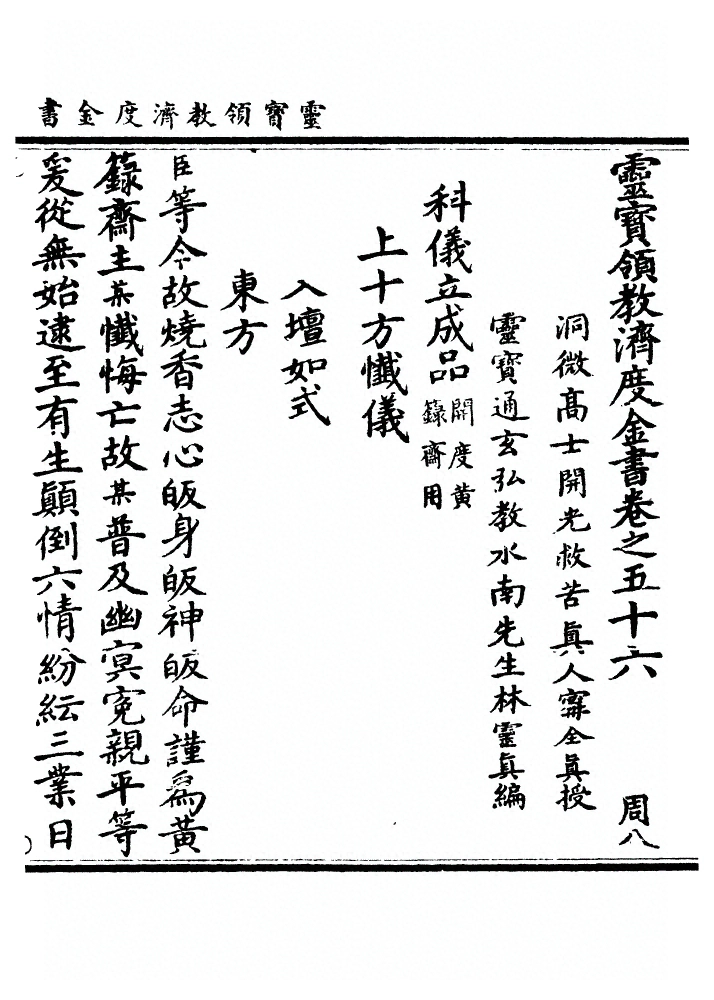 靈寶領教濟度金書
靈寶領教濟度金書卷之五十六 周八
洞微高士開光救苦眞人寗全眞授
靈寶通玄弘教水南先生林靈眞編
科儀立成品開度黃籙齋用
上十方懺儀
入壇如式
東方
臣等今故燒香志心皈身皈神皈命謹爲黃
籙齋主某懺悔亡故某普及幽冥寃親平等
爰從無始逮至有生顚倒六情紛紜三業日